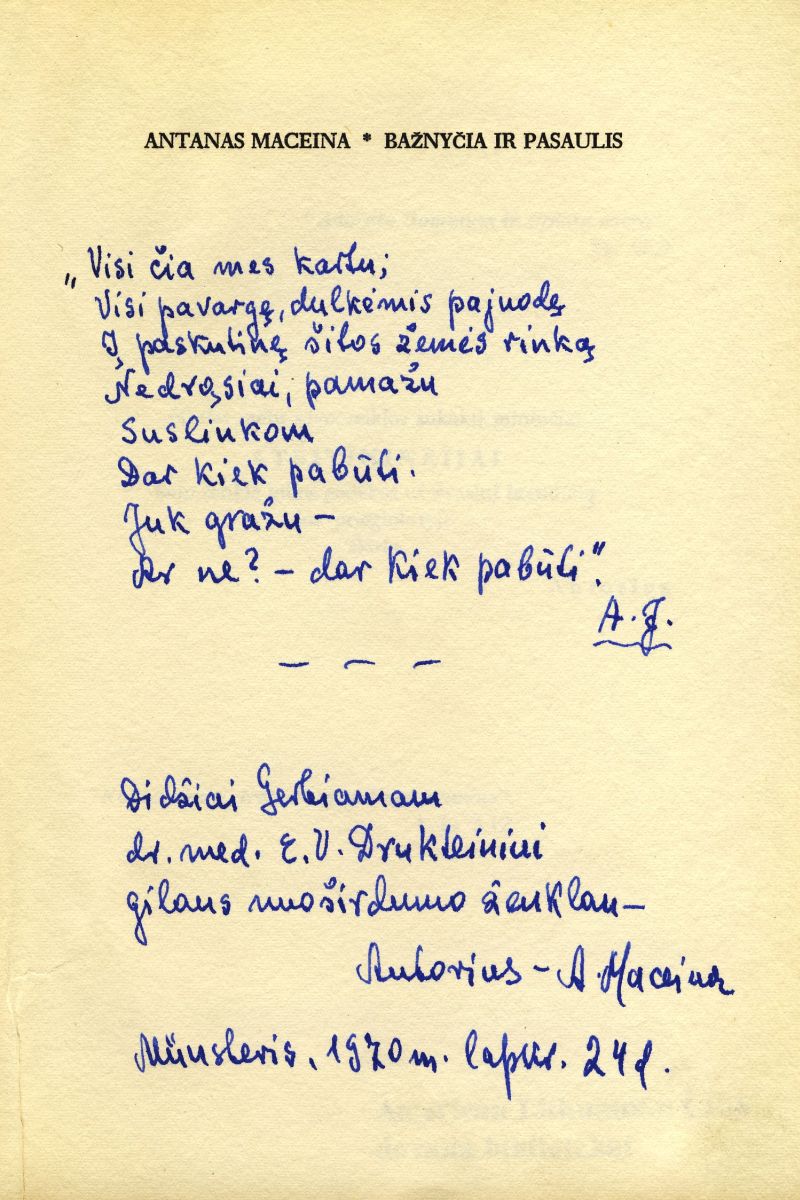 ANTANAS MACEINA * BAŽNYČIA IR PASAULIS
„Visi čia mes kartu;
Visi pavargę, dulkėmis pajuodę
Į paskutinę šitos žemės rinką
Nedrąsiai, pamažu
Suslinkom
Dar kiek pabūti.
Juk gražu –
Ar ne? – dar kiek pabūti".
A. J.
Didžiai Gerbiamam
dr. med. E. V. Drukteiniui
gilaus nuoširdumo ženklan –
Autorius – A. Maceina
Münsteris, 1970 m. lapkr. 24 d.